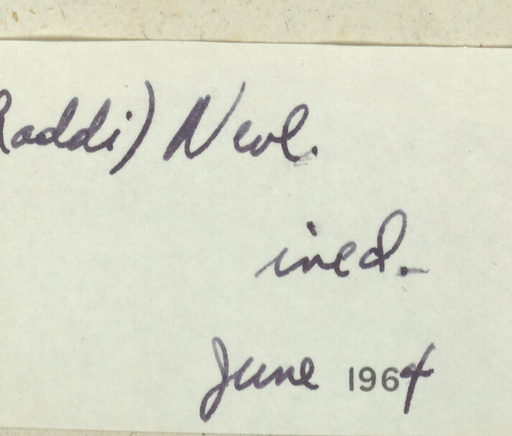 Raddi) Nevl.
ined.
June 1964